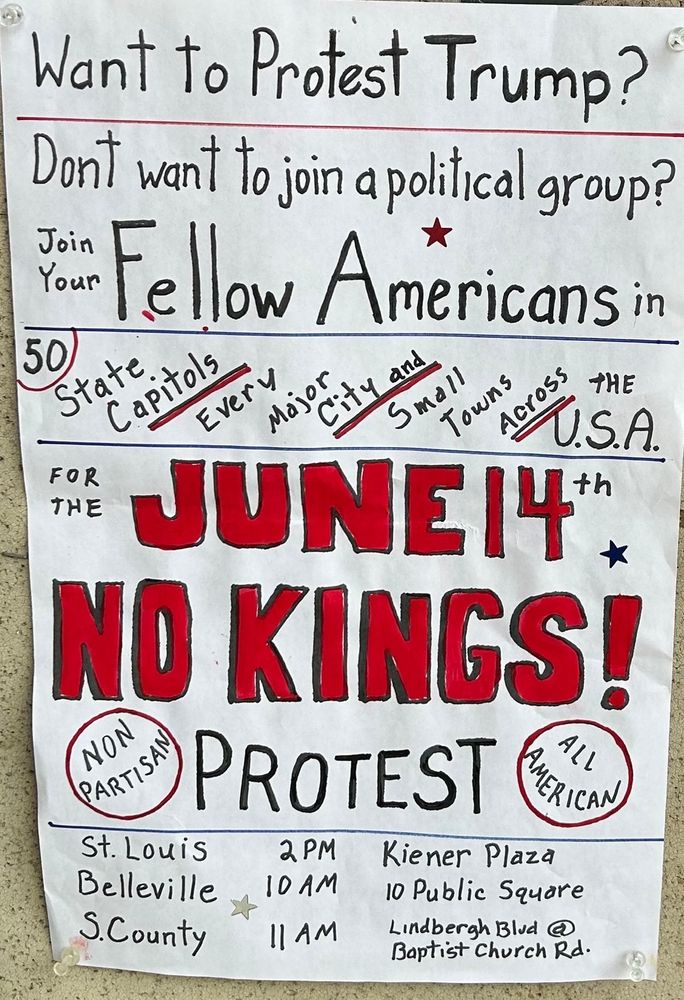 Want to Protest Trump?
Dont want to join a political group?
Join Your Fellow Americans in
50 State Capitols Every Major City and Small Towns Across THE U.S.A.
FOR THE JUNE 14th
NO KINGS!
NON PARTISAN PROTEST ALL AMERICAN
St. Louis 2 PM Kiener Plaza
Belleville 10 AM 10 Public Square
S. County 11 AM Lindbergh Blvd @ Baptist Church Rd.